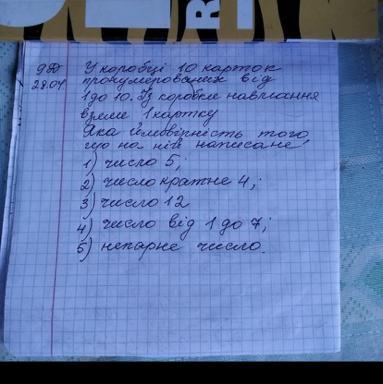 28.04
У коробці 10 карток
пронумерованих від
1 до 10. Із коробки навмання
взяли 1 картку
Яка ймовірність того
що на ній написане:
1) число 5;
2) число кратне 4;
3) число 12
4) число від 1 до 7;
5) непарне число.